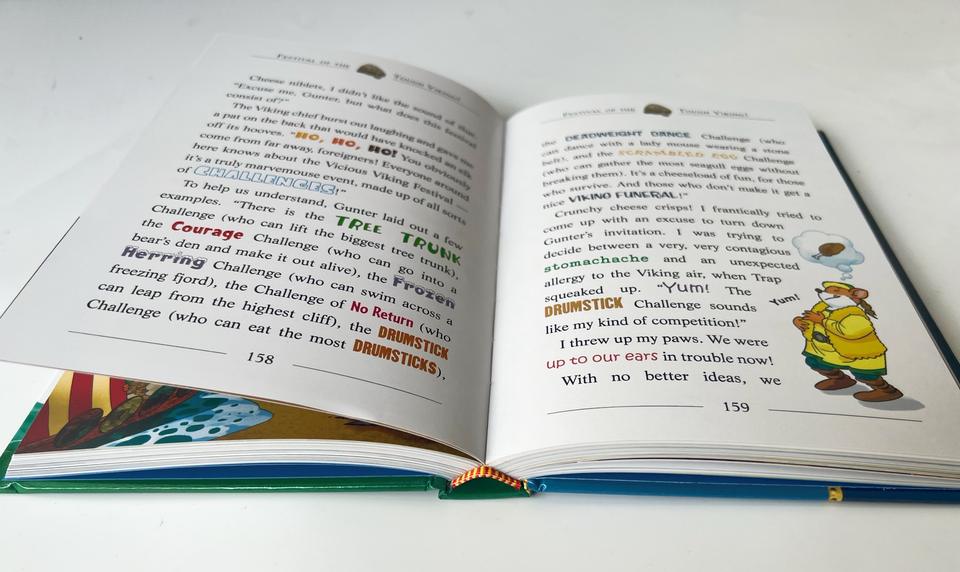 FESTIVAL OF THE TOUGH VIKING!
Cheese niblets, I didn't like the sound of that.
"Excuse me, Gunter, but what does this festival
consist of?"
The Viking chief burst out laughing and gave me
a pat on the back that would have knocked an elk
off its hooves. "HO, HO, HO! You obviously
come from far away, foreigners! Everyone around
here knows about the Vicious Viking Festival —
it's a truly marvemouse event, made up of all sorts
of CHALLENGES!"
To help us understand, Gunter laid out a few
examples. "There is the TREE TRUNK
Challenge (who can lift the biggest tree trunk),
the Courage Challenge (who can go into a
bear's den and make it out alive), the Frozen
Herring Challenge (who can swim across a
freezing fjord), the Challenge of No Return (who
can leap from the highest cliff), the DRUMSTICK
Challenge (who can eat the most DRUMSTICKS),
158
FESTIVAL OF THE TOUGH VIKING!
the DEADWEIGHT DANCE Challenge (who
can dance with a lady mouse wearing a stone
belt), and the SCRAMBLED EGG Challenge
(who can gather the most seagull eggs without
breaking them). It's a cheeseload of fun, for those
who survive. And those who don't make it get a
nice VIKING FUNERAL!"
Crunchy cheese crisps! I frantically tried to
come up with an excuse to turn down
Gunter's invitation. I was trying to
decide between a very, very contagious
stomachache and an unexpected
allergy to the Viking air, when Trap
squeaked up. "Yum! The
DRUMSTICK Challenge sounds
like my kind of competition!"
Yum!
I threw up my paws. We were
up to our ears in trouble now!
With no better ideas, we
159